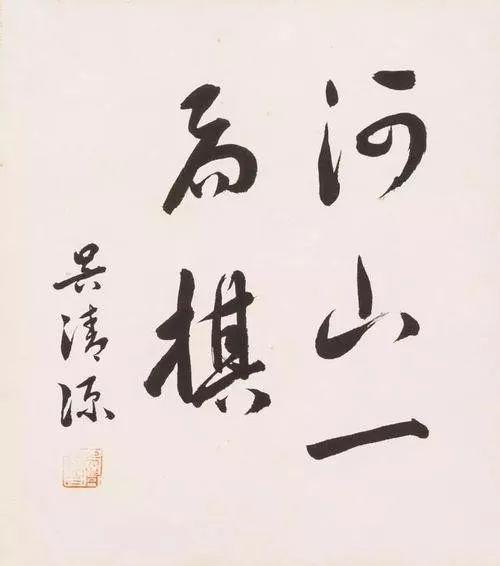 河山一
局棋
吴清源